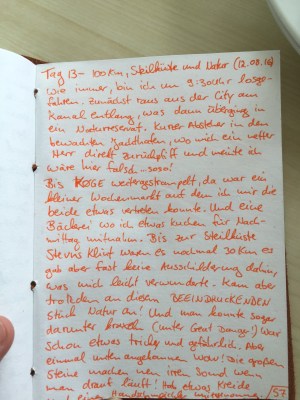 Tag 13 - 100 km, Steilküste und Natur (12.08.16)
Wie immer, bin ich um 9:30 Uhr losge-
fahren. Zunächst raus aus der City am
Kanal entlang, was dann überging in
ein Naturreservat. Kurzer Abstecher in den
bewachten Yachthafen, wo mich ein netter
Herr direkt zurückpfiff und meinte ich
wäre hier falsch. soso!
Bis KØGE weitergestrampelt, da war ein
kleiner Wochenmarkt auf dem ich mir die
beide etwas vertreten konnte. Und eine
Bäckerei wo ich etwas Kuchen für Nach-
mittag mitnahm. Bis zur Steilküste
Stevns Klint waren es nochmal 30 km es
gab aber fast keine Ausschilderung dahin,
was mich leicht verwunderte. Kam aber
trotzdem an diesem BEEINDRUCKENDEN
Stück Natur an! Und man konnte sogar
darunter (unter Great Danger!) War
schon etwas tricky und gefährlich. Aber
einmal unten angekommen WOW! Die großen
Steine machen nen irren Sound wenn
man drauf läuft! Hab etwas Kreide
und einen mitgenommen.
57